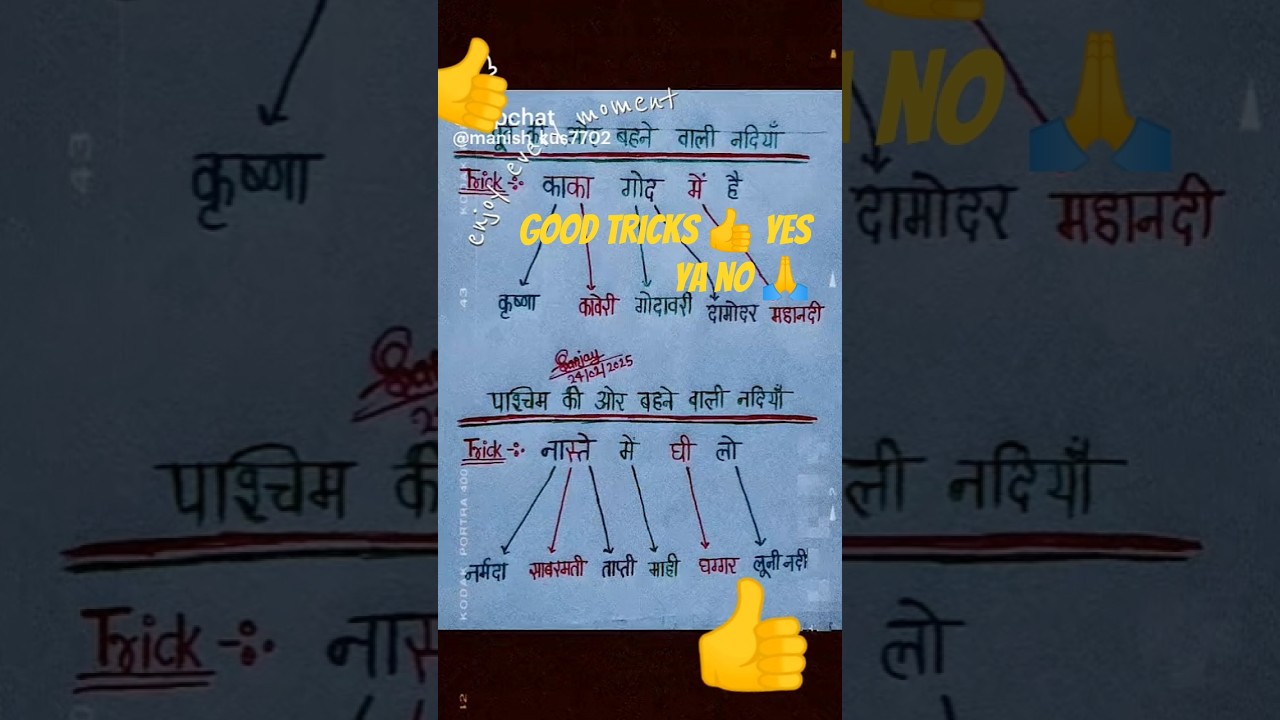 enjoy every moment
@manish_kds7702
की ओर बहने वाली नदियाँ
Trick -: काका गोद में है
GOOD TRICKS 👍 YES
YA NO 🙏
कृष्णा कावेरी गोदावरी दामोदर महानदी
Sanjay
24/02/2025
पाश्चिम की ओर बहने वाली नदियाँ
Trick -: नास्ते में घी लो
नर्मदा साबरमती ताप्ती माही घग्गर लूनी नदी
KODAK PORTRA 400
43
12